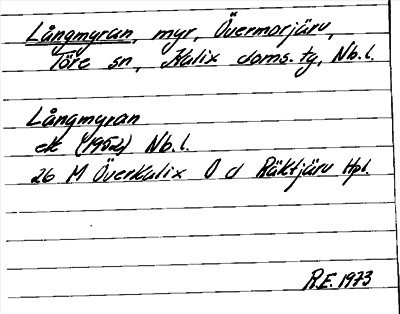 Långmyran, myr, Övermorjärv,
Töre sn, Kalix doms. tg, Nb.l.
Långmyran
ek (1952) Nb.l.
26 M Överkalix O d Räktjärv Hpl.
R.E. 1973